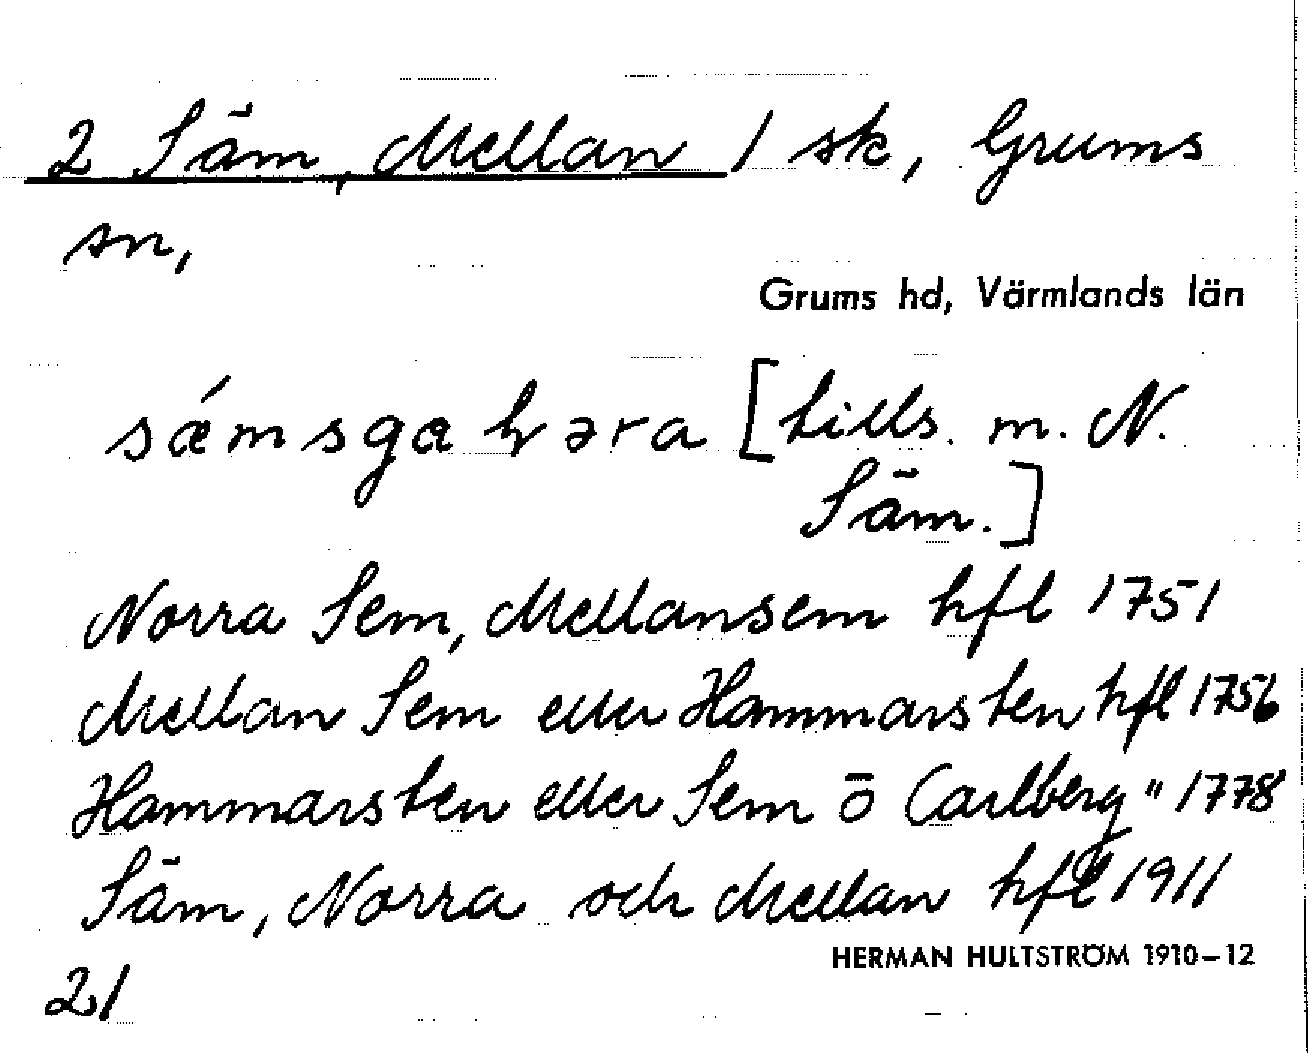 2 Säm, Mellan / sk, Grums
sn,
Grums hd, Värmlands län
sǽmsgaƕəra [tills. m. N.
Säm.]
Norra Sem, Mellansem hfl 1751
Mellan Sem eller Hammarsten hfl 1756
Hammarsten eller Sem ō Carlberg " 1778
Säm, Norra och Mellan hfl 1911
HERMAN HULTSTRÖM 1910–12
2/